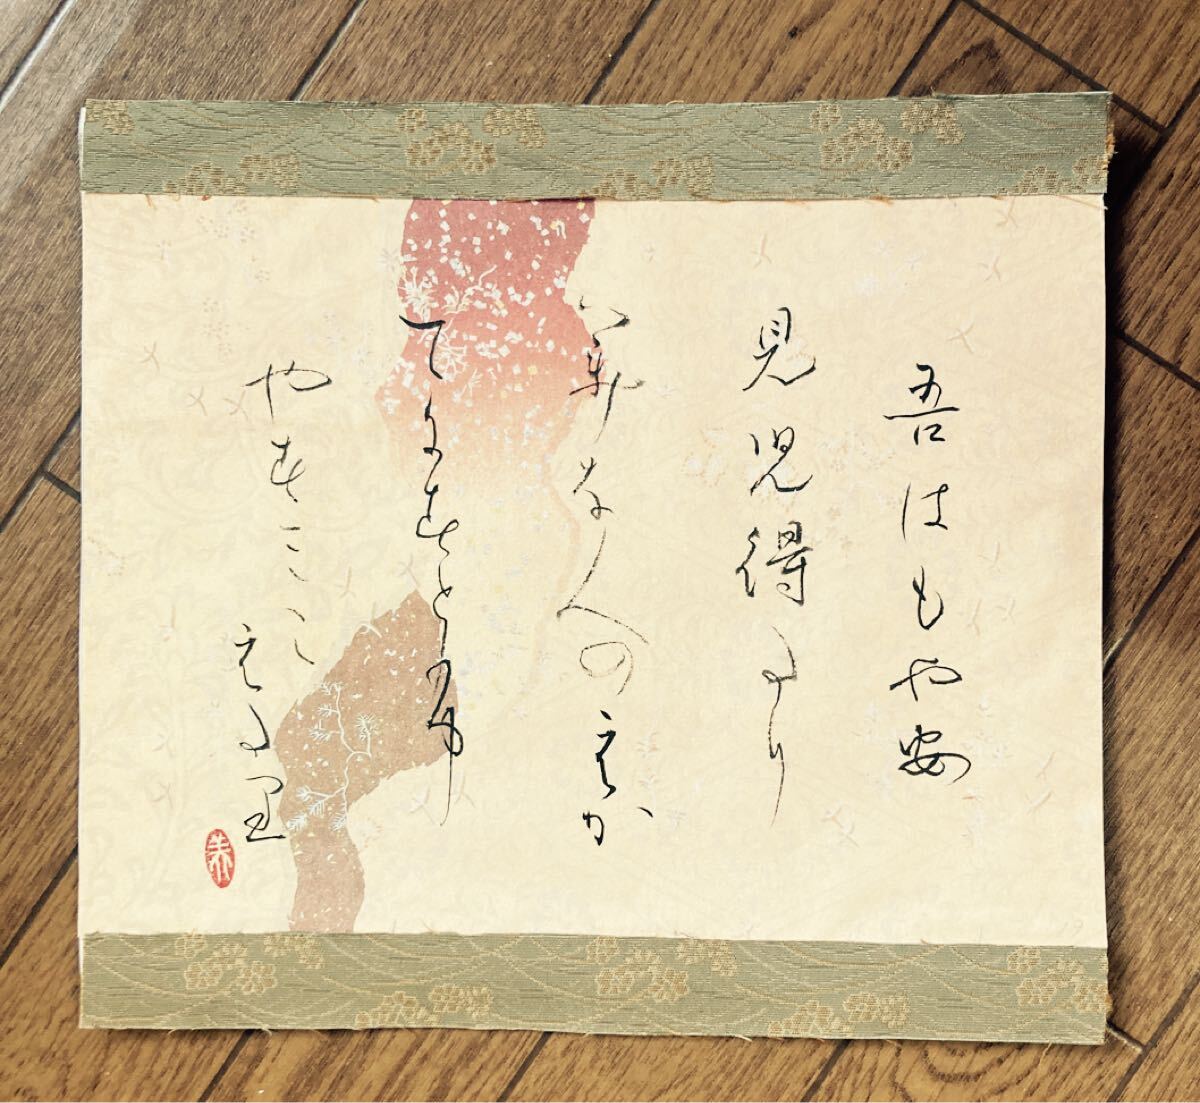 吾はもや安
見児得たり
みな人のえか
てにすとふ
やすみこ
えたり